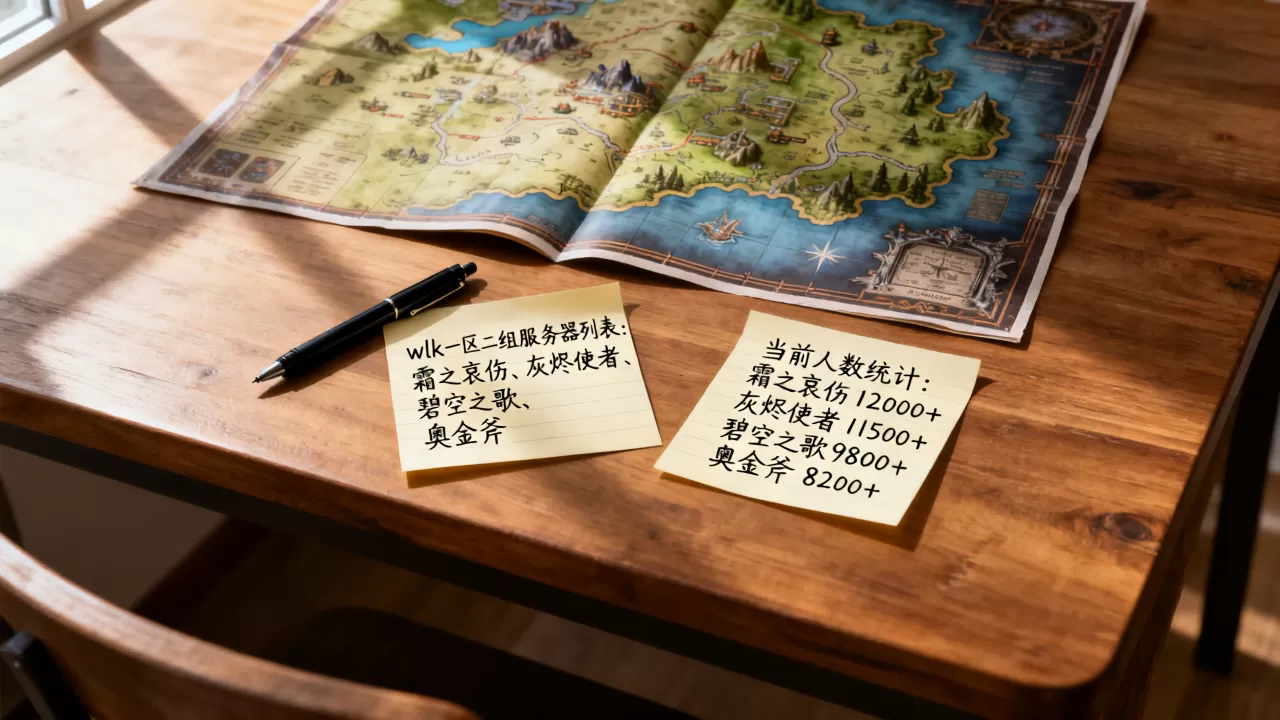 wlk一区二组服务器列表:
霜之哀伤、灰烬使者、
碧空之歌、
奥金斧
当前人数统计:
霜之哀伤 12000+
灰烬使者 11500+
碧空之歌 9800+
奥金斧 8200+